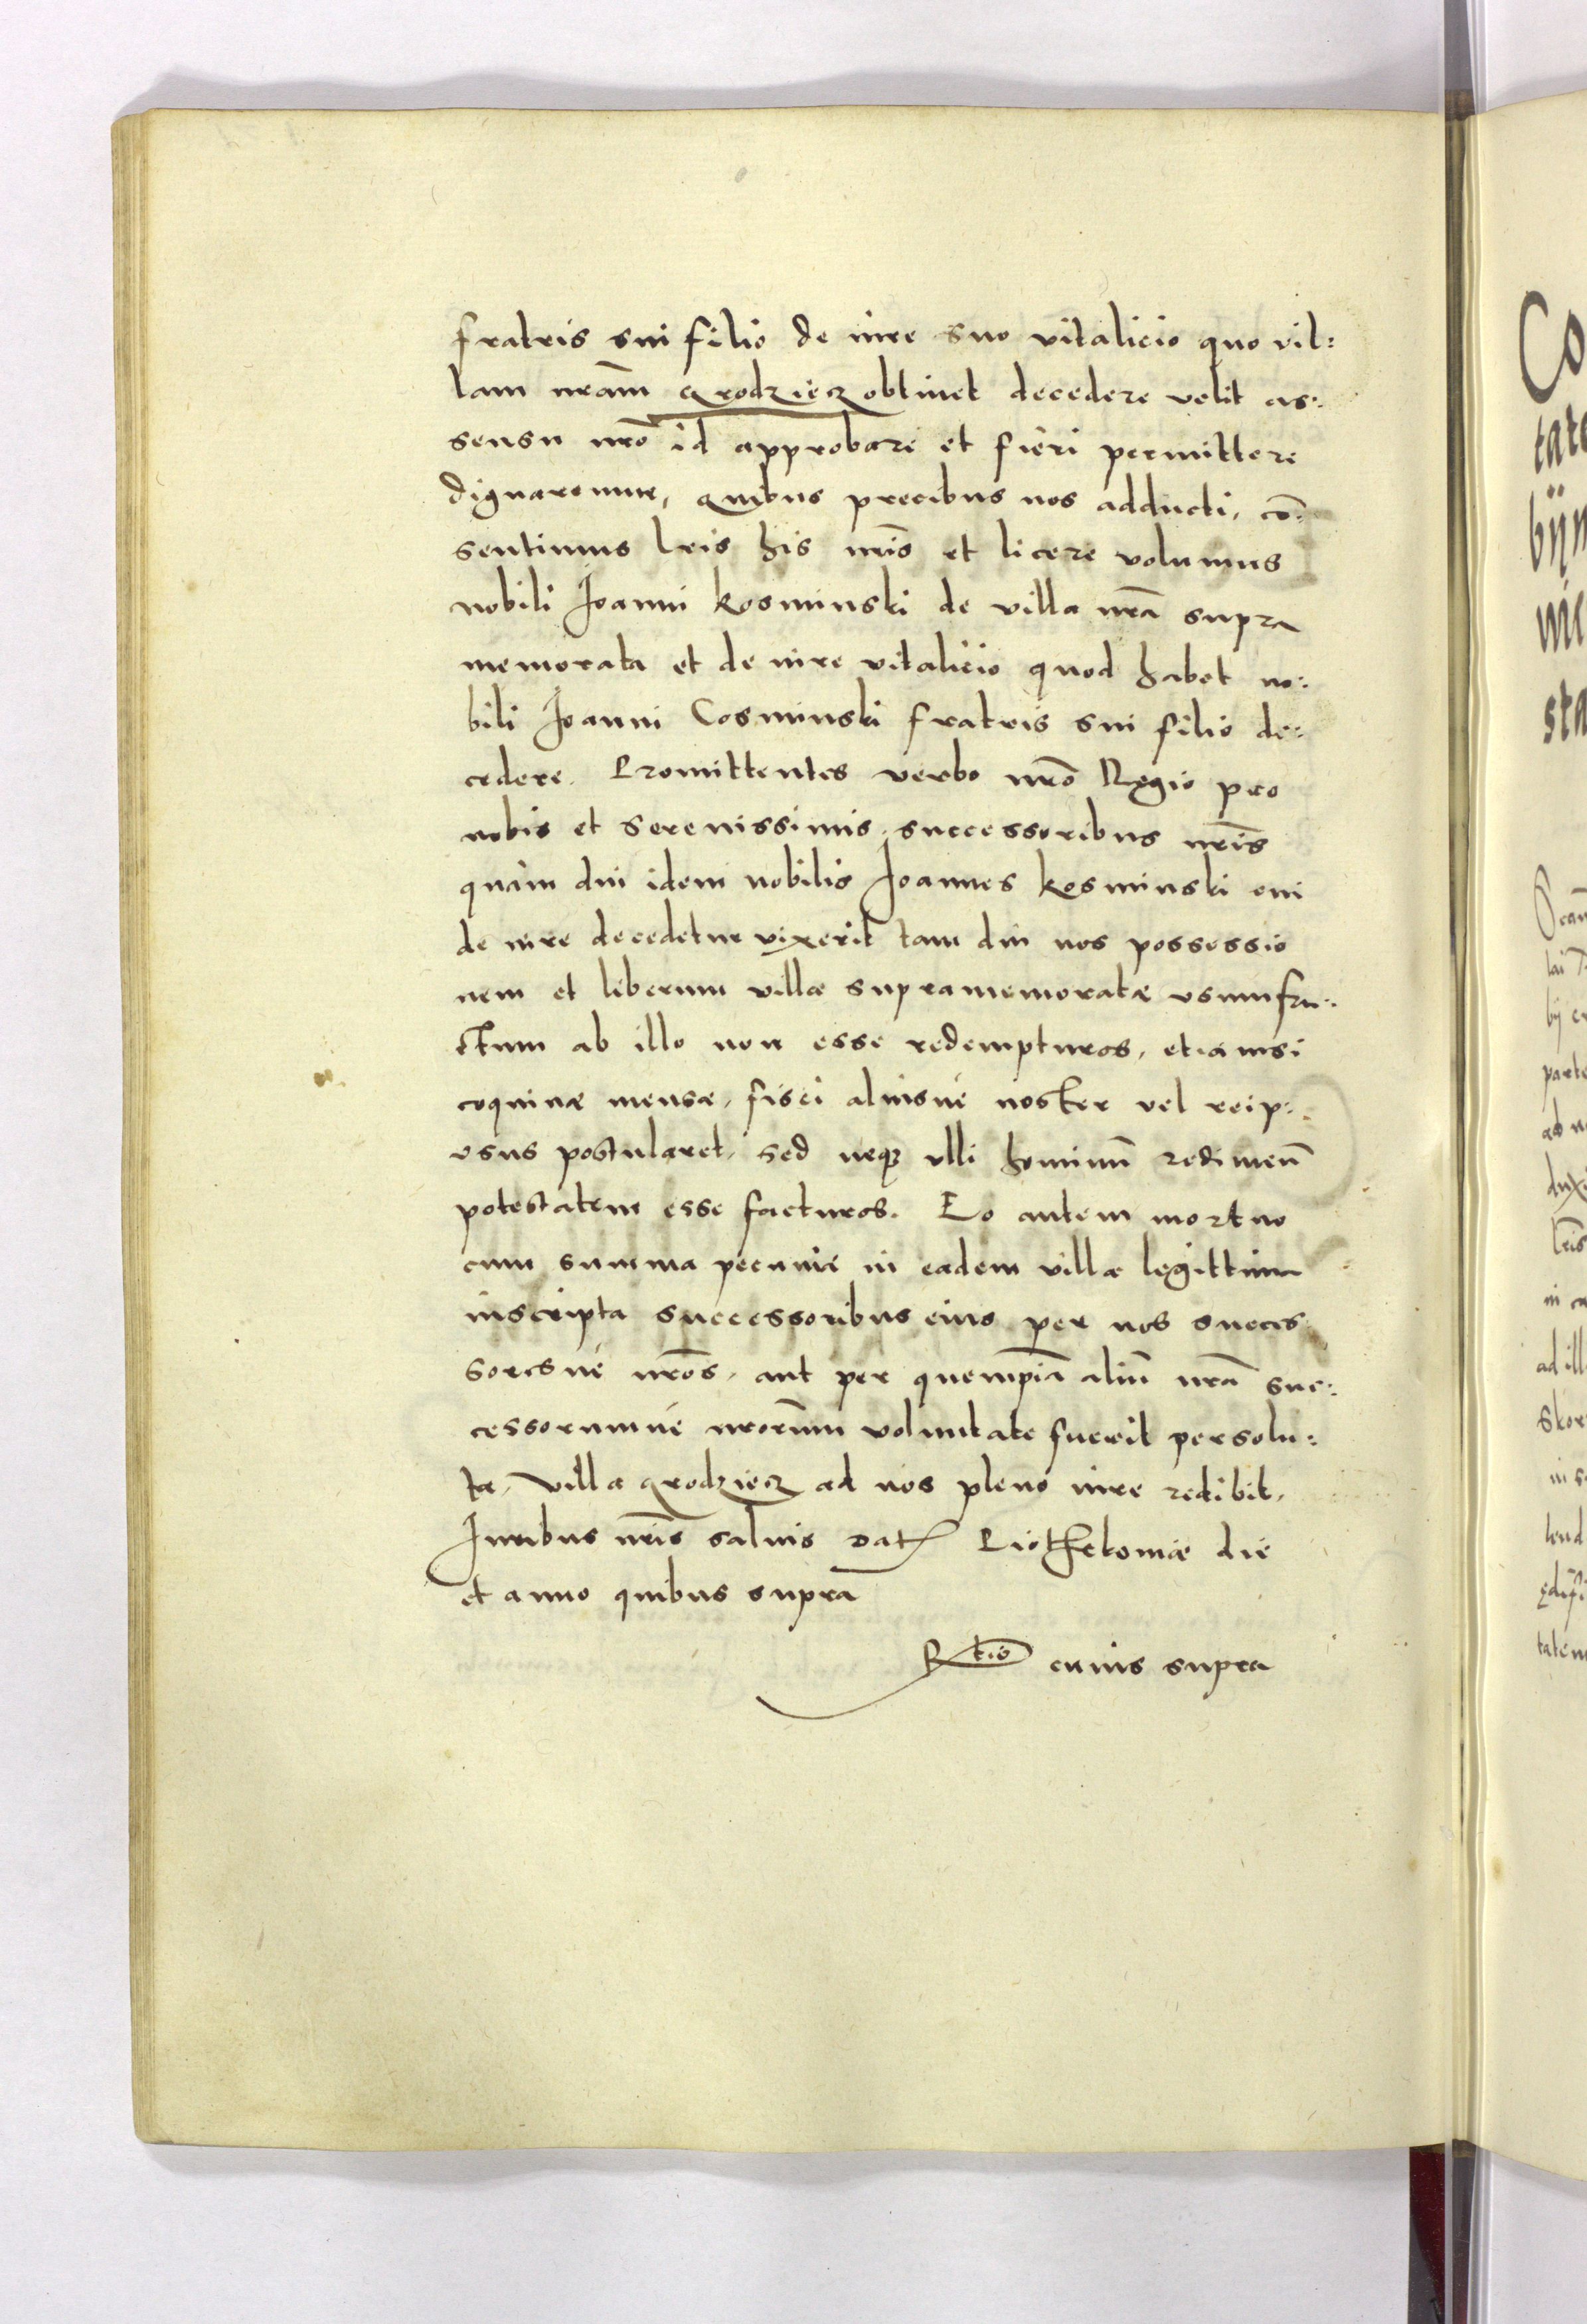 fratris sui filio de iure suo vitalicio quo vil:
lam nram̄ Grodziecz obtinet decedere velit as:
sensu nrō id approbare et fieri permittere
dignaremur, Quibus precibus nos adducti, cō:
sentimus lris his nrīs et licere volumus
nobili Joanni Kosminski de villa nrā supra
memorata et de iure vitalicio quod habet no:
bili Joanni Cosminski fratris sui filio de:
cedere. Promittentes verbo nrō Regio pro
nobis et serenissimis successoribus nrīs
quàm diu idem nobilis Joannes Kosminski cui
de iure decedetur vixerit tam diu nos possessio
nem et liberum villæ supramemoratæ vsumfru:
ctum ab illo non esse redempturos, etiamsi
coquinæ mensæ, fisci aliusué noster vel reip:
vsus postularet, sed neq; vlli hominū redimen̄
potestatem esse facturos. Eo autem mortuo
cum summa pecuniæ in eadem villa legittima
inscripta successoribus eius per nos succes
soresué nrōs, aut per quempiā aliū nrā suc:
cessorumué nrorūm voluntate fuerit persolu:
ta, villa Grodziecz ad nos pleno iure redibit,
Iuribus nrīs saluis Dat Piothrkoviæ die
et anno quibus suprà
Rtio cuius supra
Co
tate
bijn
nic
sta
lai
bij
parte
ab
dux
lris
in
ad ill
Skor
in
lend
ędifi
tatem